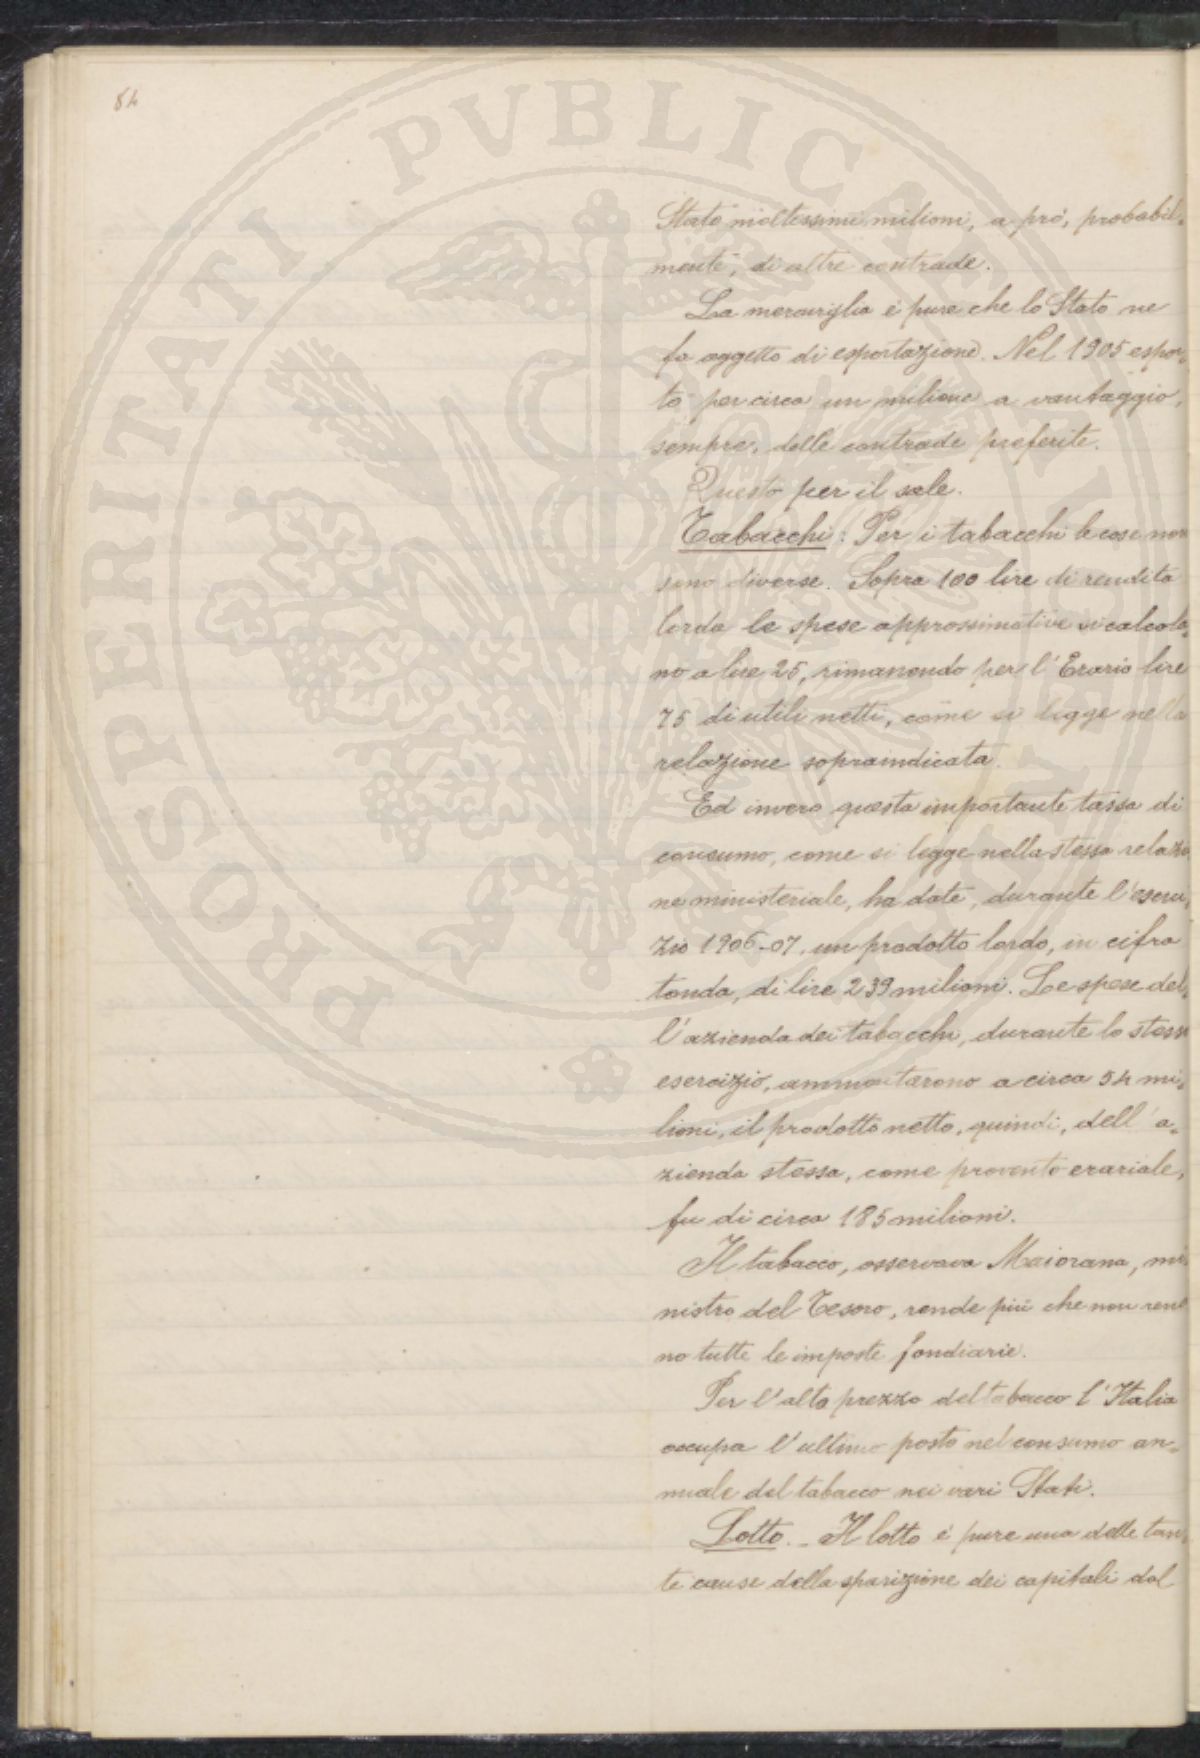 84
PUBLICAE FELICITATI PROSPERITATI
Stato moltissimi milioni, a prò, probabil-
mente, di altre contrade.
La meraviglia è pure che lo Stato ne
fa oggetto di esportazione. Nel 1905 espor-
tò per circa un milione a vantaggio,
sempre, delle contrade preferite.
Questo per il sale.
Tabacchi: Per i tabacchi le cose non
sono diverse. Sopra 100 lire di rendita
lorda le spese approssimative si calcola-
no a lire 25, rimanendo per l'Erario lire
75 di utili netti, come si legge nella
relazione sopraindicata.
Ed invero questa importante tassa di
consumo, come si legge nella stessa relazio
ne ministeriale, ha dato, durante l'eserci-
zio 1906-07, un prodotto lordo, in cifra
tonda, di lire 239 milioni. Le spese del-
l'azienda dei tabacchi, durante lo stesso
esercizio, ammontarono a circa 54 mi-
lioni, il prodotto netto, quindi, dell'a-
zienda stessa, come provento erariale,
fu di circa 185 milioni.
Il tabacco, osservava Maiorana, mi-
nistro del Tesoro, rende più che non rend
no tutte le imposte fondiarie.
Per l'alto prezzo del tabacco l'Italia
occupa l'ultimo posto nel consumo an-
nuale del tabacco nei vari Stati.
Lotto. - Il lotto è pure una delle tan-
te cause della sparizione dei capitali dal